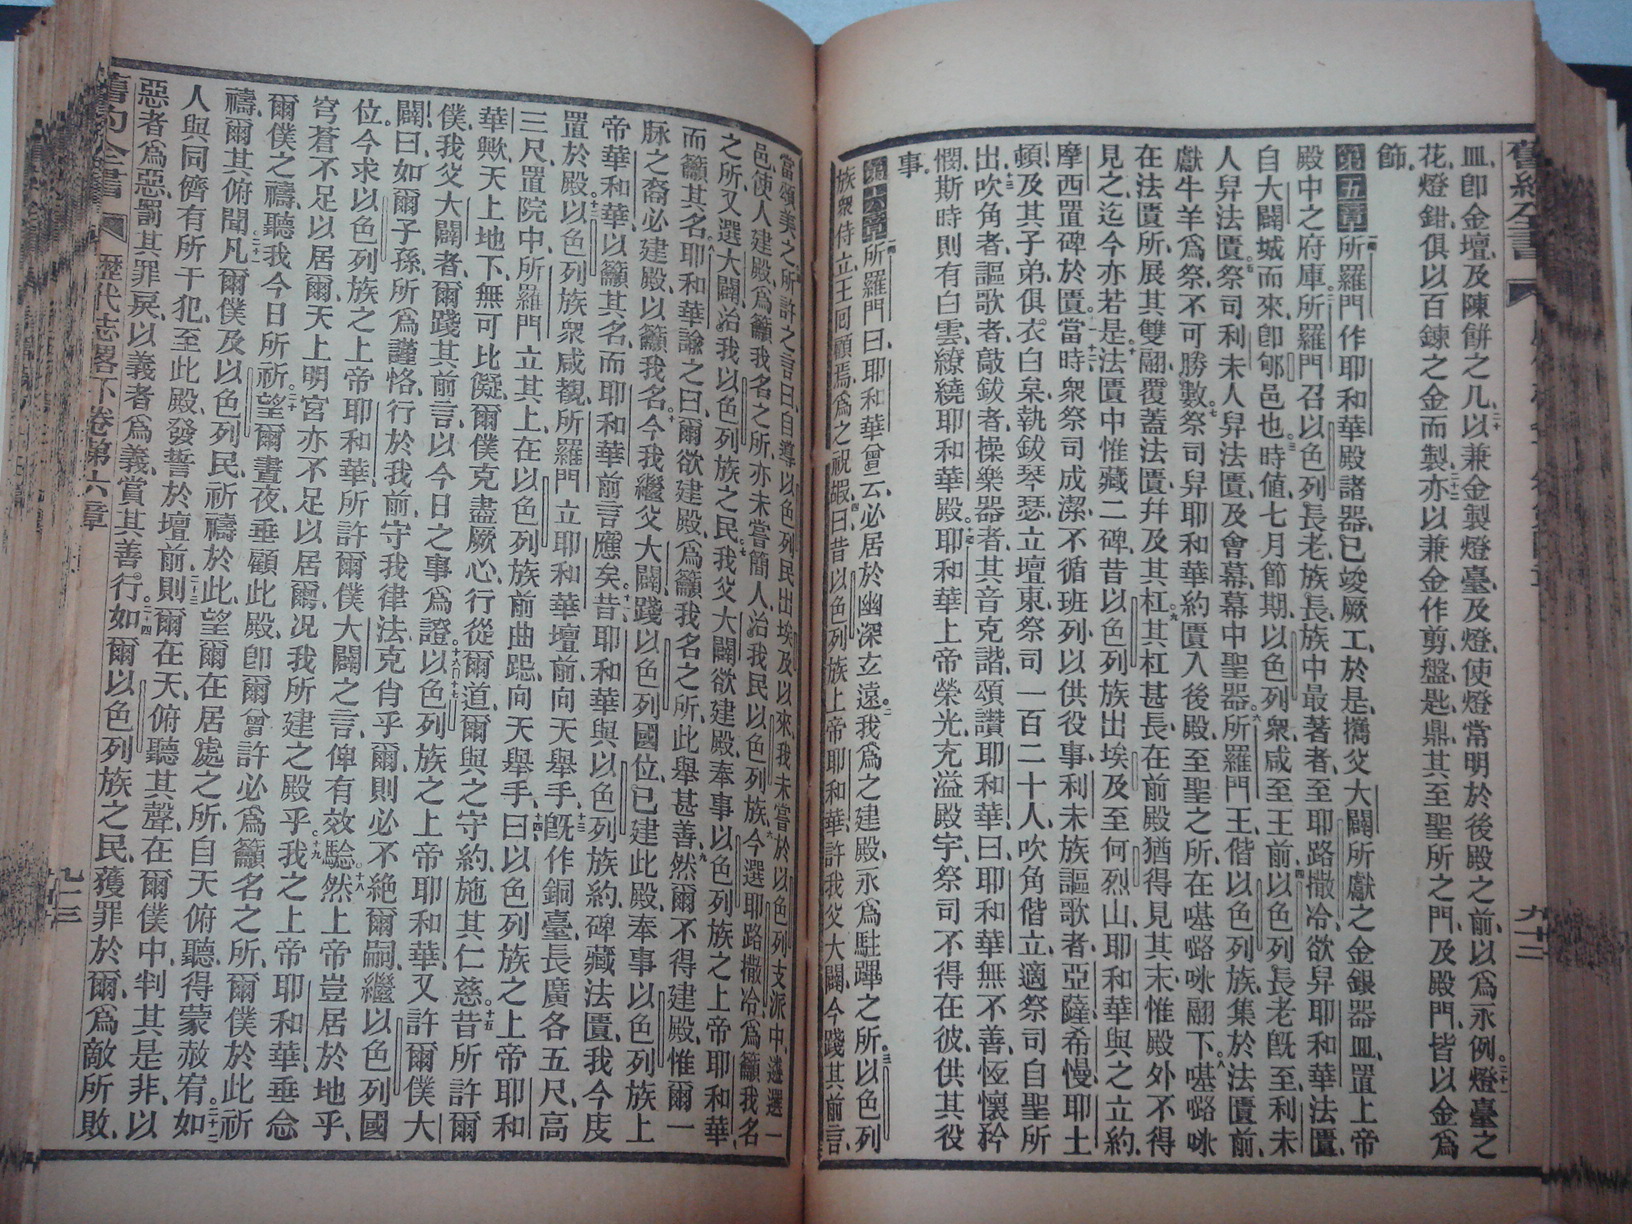 舊約全書
九十二
皿、卽金壇、及陳餅之几、二十以兼金製燈臺、及燈、使燈常明於後殿之前、以爲永例。二十一燈臺之
花、燈鉗、俱以百鍊之金而製、二十二亦以兼金作剪、盤、匙、鼎、其至聖所之門、及殿門、皆以金爲
飾。
第五章 一所羅門作耶和華殿諸器、已竣厥工、於是攜父大闢所獻之金銀器皿、置上帝
殿中之府庫、二所羅門召以色列長老、族長、族中最著者、至耶路撒冷、欲舁耶和華法匱、
自大闢城而來、卽郇邑也、三時値七月節期、以色列衆、咸至王前、四以色列長老旣至、利未
人舁法匱、五祭司利未人舁法匱、及會幕、幕中聖器、六所羅門王、偕以色列族集於法匱前、
獻牛羊爲祭、不可勝數、七祭司舁耶和華約匱入後殿、至聖之所、在𠼻㗉㖫翮下、八𠼻㗉㖫
在法匱所、展其雙翮、覆蓋法匱、幷及其杠、九其杠甚長、在前殿猶得見其末、惟殿外不得
見之、迄今亦若是、十法匱中惟藏二碑、昔以色列族出埃及、至何烈山、耶和華與之立約、
摩西置碑於匱、十一當時衆祭司成潔、不循班列以供役事、十二利未族謳歌者、亞薩、希慢、耶土
頓、及其子弟、俱衣白枲、執鈸琴瑟、立壇東、祭司一百二十人、吹角偕立、十三適祭司自聖所
出、吹角者、謳歌者、敲鈸者、操樂器者、其音克諧、頌讚耶和華、曰、耶和華無不善、恆懷矜
憫、斯時則有白雲、繚繞耶和華殿、十四耶和華上帝榮光充溢殿宇、祭司不得在彼、供其役
事。
第六章 一所羅門曰、耶和華曾云、必居於幽深玄遠、二我爲之建殿、永爲駐蹕之所、三以色列
族衆侍立、王回顧焉、爲之祝嘏、四曰、昔以色列族上帝耶和華、許我父大闢、今踐其前言、
當頌美之、五所許之言曰、自導以色列民出埃及以來、我未嘗於以色列支派中、遴選一
邑、使人建殿、爲籲我名之所、亦未嘗簡人治我民以色列族、六今選耶路撒冷、爲籲我名
之所、又選大闢、治我以色列族之民、七我父大闢欲建殿、奉事以色列族之上帝耶和華、
而籲其名、八耶和華諭之曰、爾欲建殿、爲籲我名之所、此舉甚善、九然爾不得建殿、惟爾一
脉之裔、必建殿、以籲我名、十今我繼父大闢、踐以色列國位、已建此殿、奉事以色列族上
帝耶和華、以籲其名、而耶和華前言應矣、十一昔耶和華與以色列族約、碑藏法匱、我今庋
置於殿、十二以色列族衆咸覩、所羅門立耶和華壇前、向天舉手、十三旣作銅臺、長廣各五尺、高
三尺、置院中、所羅門立其上、在以色列族前曲跽、向天舉手、十四曰、以色列族之上帝耶和
華歟、天上地下、無可比儗、爾僕克盡厥心、行從爾道、爾與之守約、施其仁慈、十五昔所許爾
僕、我父大闢者、爾踐其前言、以今日之事爲證、十六〇十七以色列族之上帝耶和華、又許爾僕大
闢曰、如爾子孫、所爲謹恪、行於我前、守我律法、克肖乎爾、則必不絕爾嗣、繼以色列國
位、今求以色列族之上帝耶和華、所許爾僕大闢之言、俾有效驗、十八然上帝豈居於地乎、
穹蒼不足以居爾、天上明宮、亦不足以居爾、况我所建之殿乎、十九我之上帝耶和華、垂念
爾僕之禱、聽我今日所祈、二十望爾晝夜、垂顧此殿、卽爾曾許必爲籲名之所、爾僕於此祈
禱、爾其俯聞、二十一凡爾僕及以色列民、祈禱於此、望爾在居處之所、自天俯聽、得蒙赦宥、二十二如
人與同儕有所干犯、至此殿、發誓於壇前、二十三則爾在天、俯聽其聲、在爾僕中、判其是非、以
惡者爲惡、罰其罪戾、以義者爲義、賞其善行、二十四如爾以色列族之民、獲罪於爾、爲敵所敗、
舊約全書
歷代志畧下卷第六章
九十三